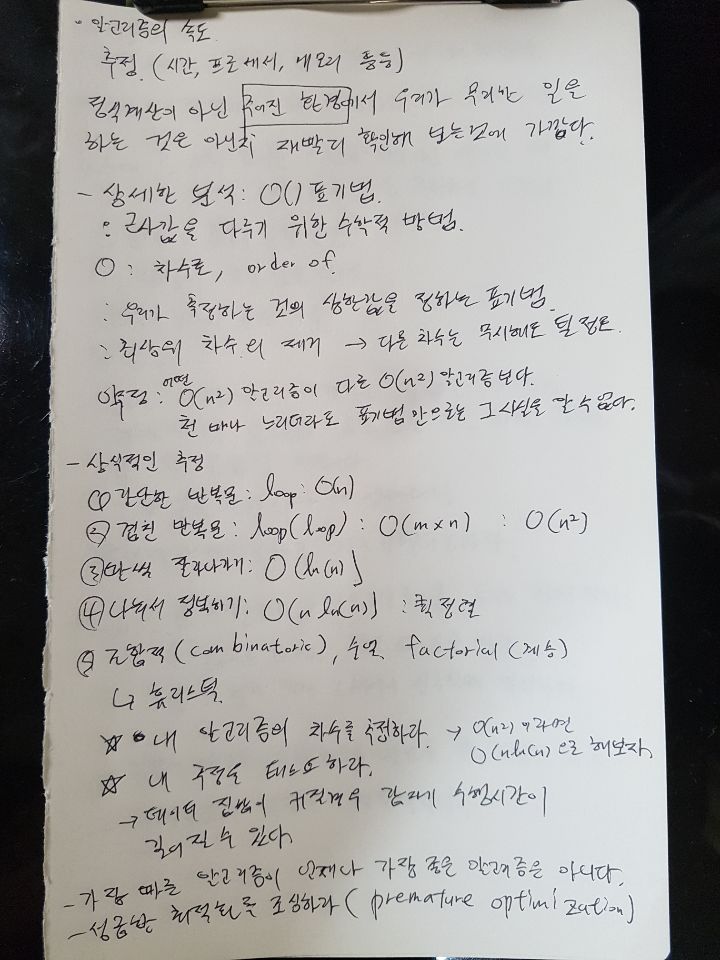 · 알고리즘의 속도.
추정. (시간, 프로세서, 메모리 등등)
정식계산이 아닌 주어진 환경에서 우리가 무리한 일을
하는 것은 아닌지 재빨리 확인해 보는것에 가깝다.
- 상세한 분석: O() 표기법.
: 근사값을 다루기 위한 수학적 방법.
O : 차수로, order of.
: 우리가 측정하는 것의 상한값을 정하는 표기법.
: 최상위 차수의 제거 → 다른 차수는 무시해도 될 정도.
약점: 어떤 O(n²) 알고리즘이 다른 O(n²) 알고리즘보다.
천 배나 느리더라도 표기법 안으로는 그 사실을 알 수 없다.
- 상식적인 추정
① 간단한 반복문: loop: O(n)
② 겹친 반복문: loop(loop) : O(m×n) : O(n²)
③ 반씩 잘라나가기: O(ln(n))
④ 나눠서 정복하기: O(n ln(n)) : 퀵정렬
⑤ 조합적 (combinatoric), 순열 factorial (계승)
↳ 휴리스틱.
☆ • 내 알고리즘의 차수를 추정하라. → O(n²) 이라면
O(nln(n)) 으로 해보자.
☆ 내 추정을 테스트 하라.
→ 데이터 집합이 커질경우 갑자기 수행시간이
길어질 수 있다.
- 가장 빠른 알고리즘이 언제나 가장 좋은 알고리즘은 아니다.
- 성급한 최적화를 조심하라 (premature optimization)